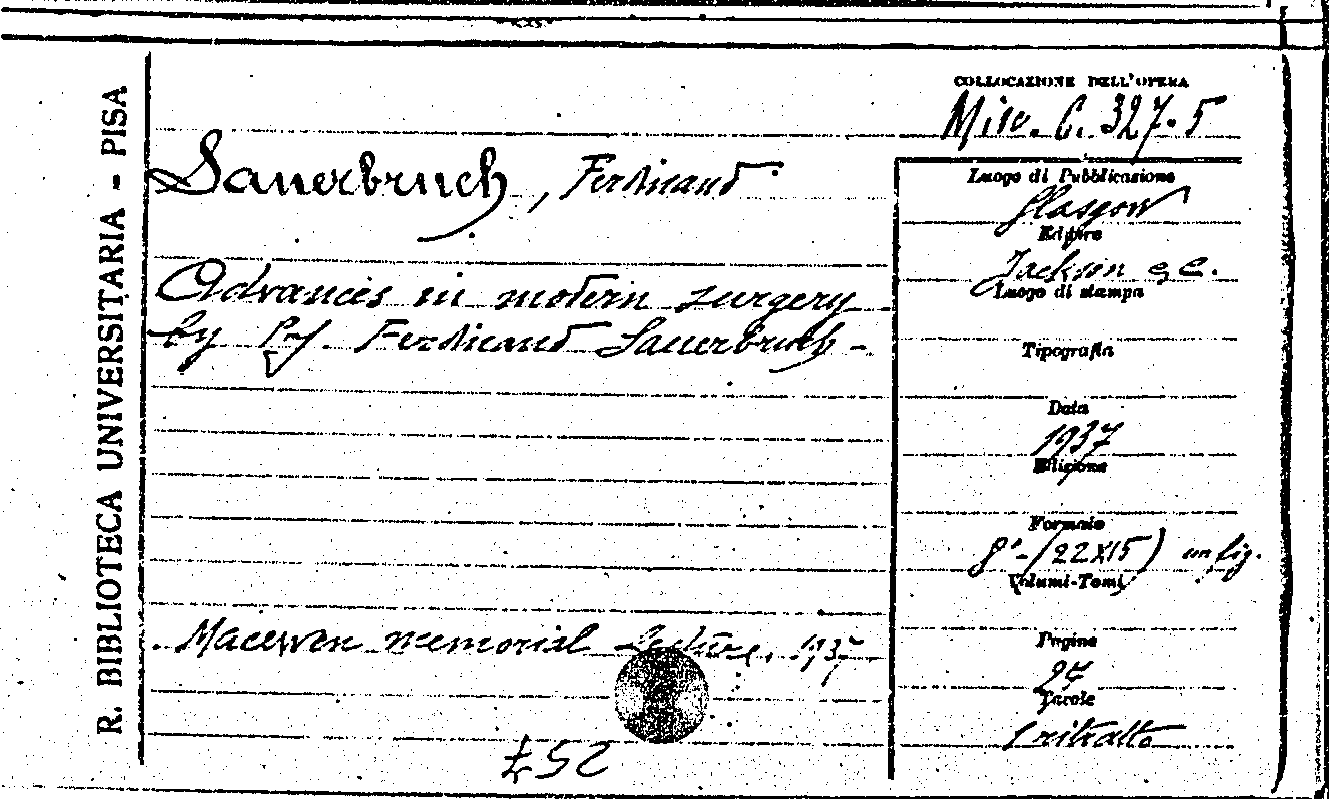 R. BIBLIOTECA UNIVERSITARIA - PISA
COLLOCAZIONE DELL'OPERA
Misc. C. 327.5
Sauerbruch, Ferdinand
Advances in modern surgery
by Prof. Ferdinand Sauerbruch -
Macewen memorial Lecture, 1937
Luogo di Pubblicazione
Glasgow
Editore
Jackson e C.
Luogo di stampa
Tipografia
Data
1937
Edizione
Formato
8°-(22X15) con fig.
Volumi-Tomi
Pagine
Tavole
1 ritratto